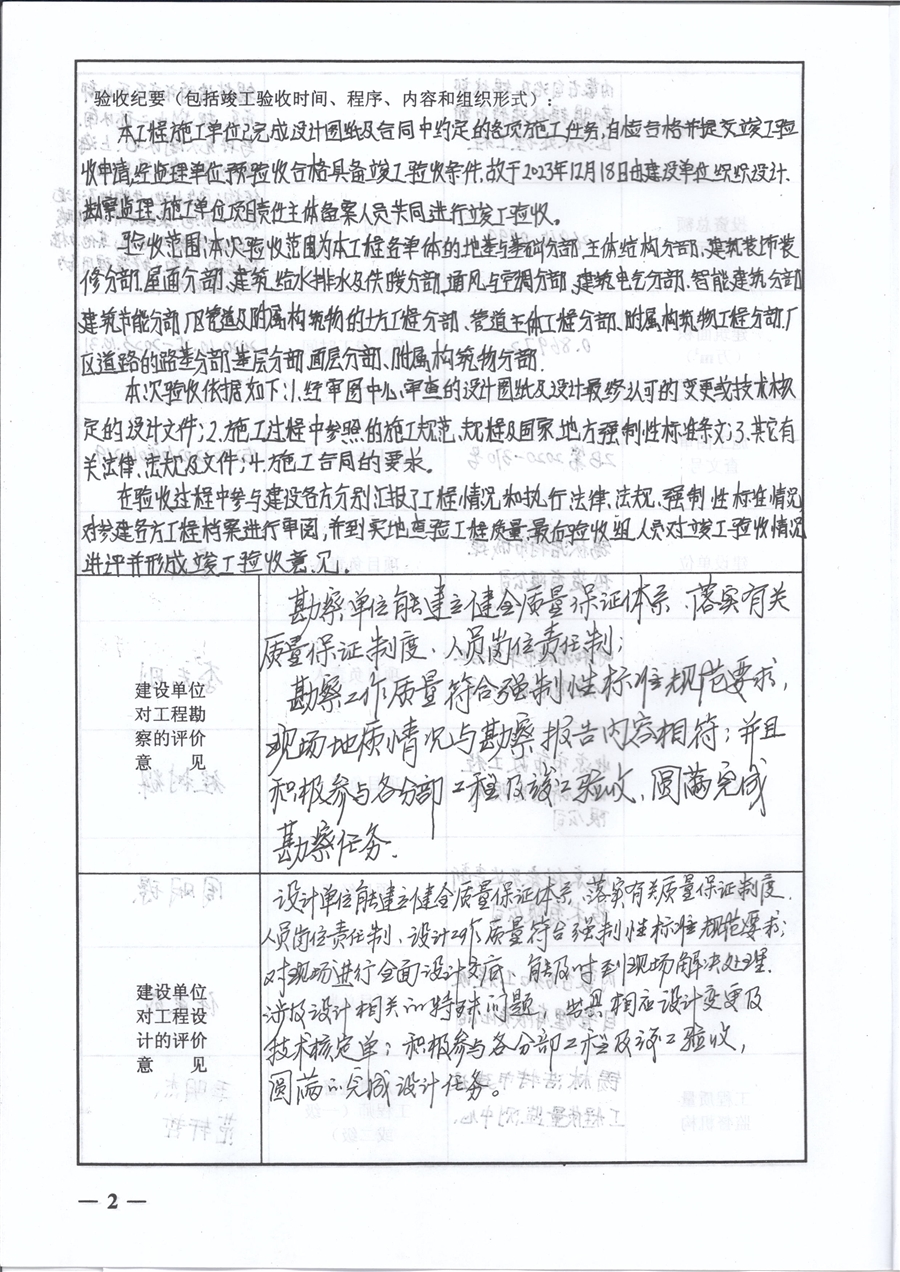 验收纪要（包括竣工验收时间、程序、内容和组织形式）：
本工程施工单位已完成设计图纸及合同中约定的各项施工任务,自检合格并提交竣工验
收申请,经监理单位预验收合格具备竣工验收条件,故于2023年12月18日由建设单位组织设计、
勘察监理、施工单位项目责任主体备案人员共同进行竣工验收。
验收范围:本次验收范围为本工程各单体的地基与基础分部、主体结构分部、建筑装饰装
修分部、屋面分部、建筑给水排水及供暖分部、通风与空调分部、建筑电气分部、智能建筑分部
建筑节能分部、厂区管道及附属构筑物的土方工程分部、管道主体工程分部、附属构筑物工程分部、厂
区道路的路基分部、基层分部、面层分部、附属构筑物分部.
本次验收依据如下:1.经审图中心审查的设计图纸及设计最终认可的变更或技术核
定的设计文件;2.施工过程中参照的施工规范、规程及国家、地方强制性标准条文;3.其它有
关法律、法规及文件;4.施工合同的要求。
在验收过程中参与建设各方分别汇报了工程情况和执行法律、法规、强制性标准情况
对参建各方工程档案进行审阅,并到实地查验工程质量,最后验收组人员对竣工验收情况
进评并形成竣工验收意见。
建设单位
对工程勘
察的评价
意 见
勘察单位能建立健全质量保证体系、落实有关
质量保证制度、人员岗位责任制;
勘察工作质量符合强制性标准规范要求,
现场地质情况与勘察报告内容相符;并且
积极参与各分部工程及竣工验收、圆满完成
勘察任务.
建设单位
对工程设
计的评价
意 见
设计单位能建立健全质量保证体系、落实有关质量保证制度、
人员岗位责任制、设计工作质量符合强制性标准规范要求;
对现场进行全面设计交底、能及时到现场解决处理
涉及设计相关的特殊问题、出具相应设计变更及
技术核定单;积极参与各分部工程及竣工验收,
圆满的完成设计任务。
— 2 —